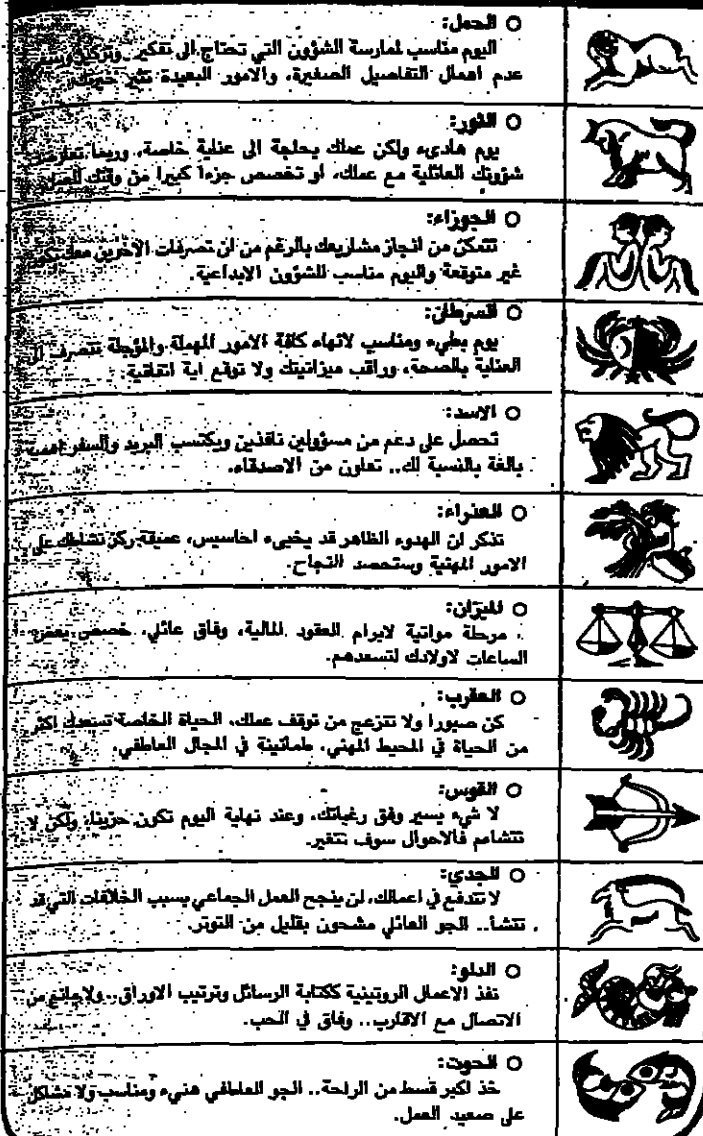 ○ الحمل:
اليوم مناسب لممارسة الشؤون التي تحتاج الى تفكير وتركيز
عدم اهمال التفاصيل الصغيرة، والامور البعيدة تثير
○ الثور:
يوم هادىء ولكن عملك بحاجة الى عناية خاصة، وربما
شؤونك العائلية مع عملك، او تخصص جزءاً كبيرا من وقتك للعمل
○ الجوزاء:
تتمكن من انجاز مشاريعك بالرغم من ان تصرفات الآخرين معك
غير متوقعة واليوم مناسب للشؤون الابداعية.
○ السرطان:
يوم بطيء ومناسب لانهاء كافة الامور المهملة والمؤجلة تنصرف
العناية بالصحة، وراقب ميزانيتك ولا توقع اية اتفاقية.
○ الاسد:
تحصل على دعم من مسؤولين نافذين ويكتسب البريد والسفر اهمية
بالغة بالنسبة لك.. تعاون من الاصدقاء.
○ العذراء:
تذكر ان الهدوء الظاهر قد يخبىء احاسيس، عميقة ركز نشاطك على
الامور المهنية وستحصد النجاح.
○ الميزان:
مرحلة مواتية لابرام العقود المالية، وفاق عائلي، خصص بعض
الساعات لاولادك لتسعدهم.
○ العقرب:
كن صبورا ولا تنزعج من توقف عملك، الحياة الخاصة تسعدك اكثر
من الحياة في المحيط المهني، طمأنينة في المجال العاطفي.
○ القوس:
لا شيء يسير وفق رغباتك، وعند نهاية اليوم تكون حزينا، ولكن لا
تتشاءم فالاحوال سوف تتغير.
○ الجدي:
لا تندفع في اعمالك، لن ينجح العمل الجماعي بسبب الخلافات التي قد
تنشأ.. الجو العائلي مشحون بقليل من التوتر.
○ الدلو:
نفذ الاعمال الروتينية ككتابة الرسائل وترتيب الاوراق.. ولا مانع من
الاتصال مع الاقارب.. وفاق في الحب.
○ الحوت:
خذ اكبر قسط من الراحة.. الجو العاطفي هنيء ومناسب ولا مشاكل
على صعيد العمل.